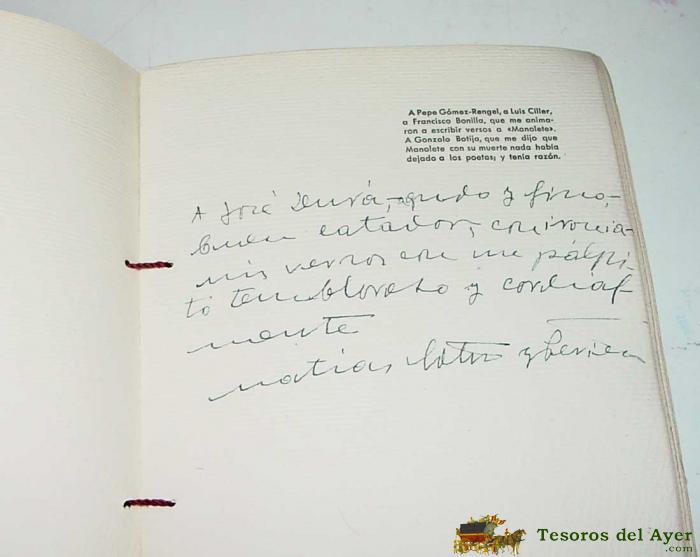 A Pepe Gómez-Rengel, a Luis Ciller,
a Francisco Bonilla, que me anima-
ron a escribir versos a «Manolete».
A Gonzalo Botija, que me dijo que
Manolete con su muerte nada había
dejado a los poetas; y tenía razón.
A José agudo y fino,
buen catador, con ironía
mis versos con un pálpi-
to tembloroso y cordial
mente
matias
Tesoros del Ayer
.com